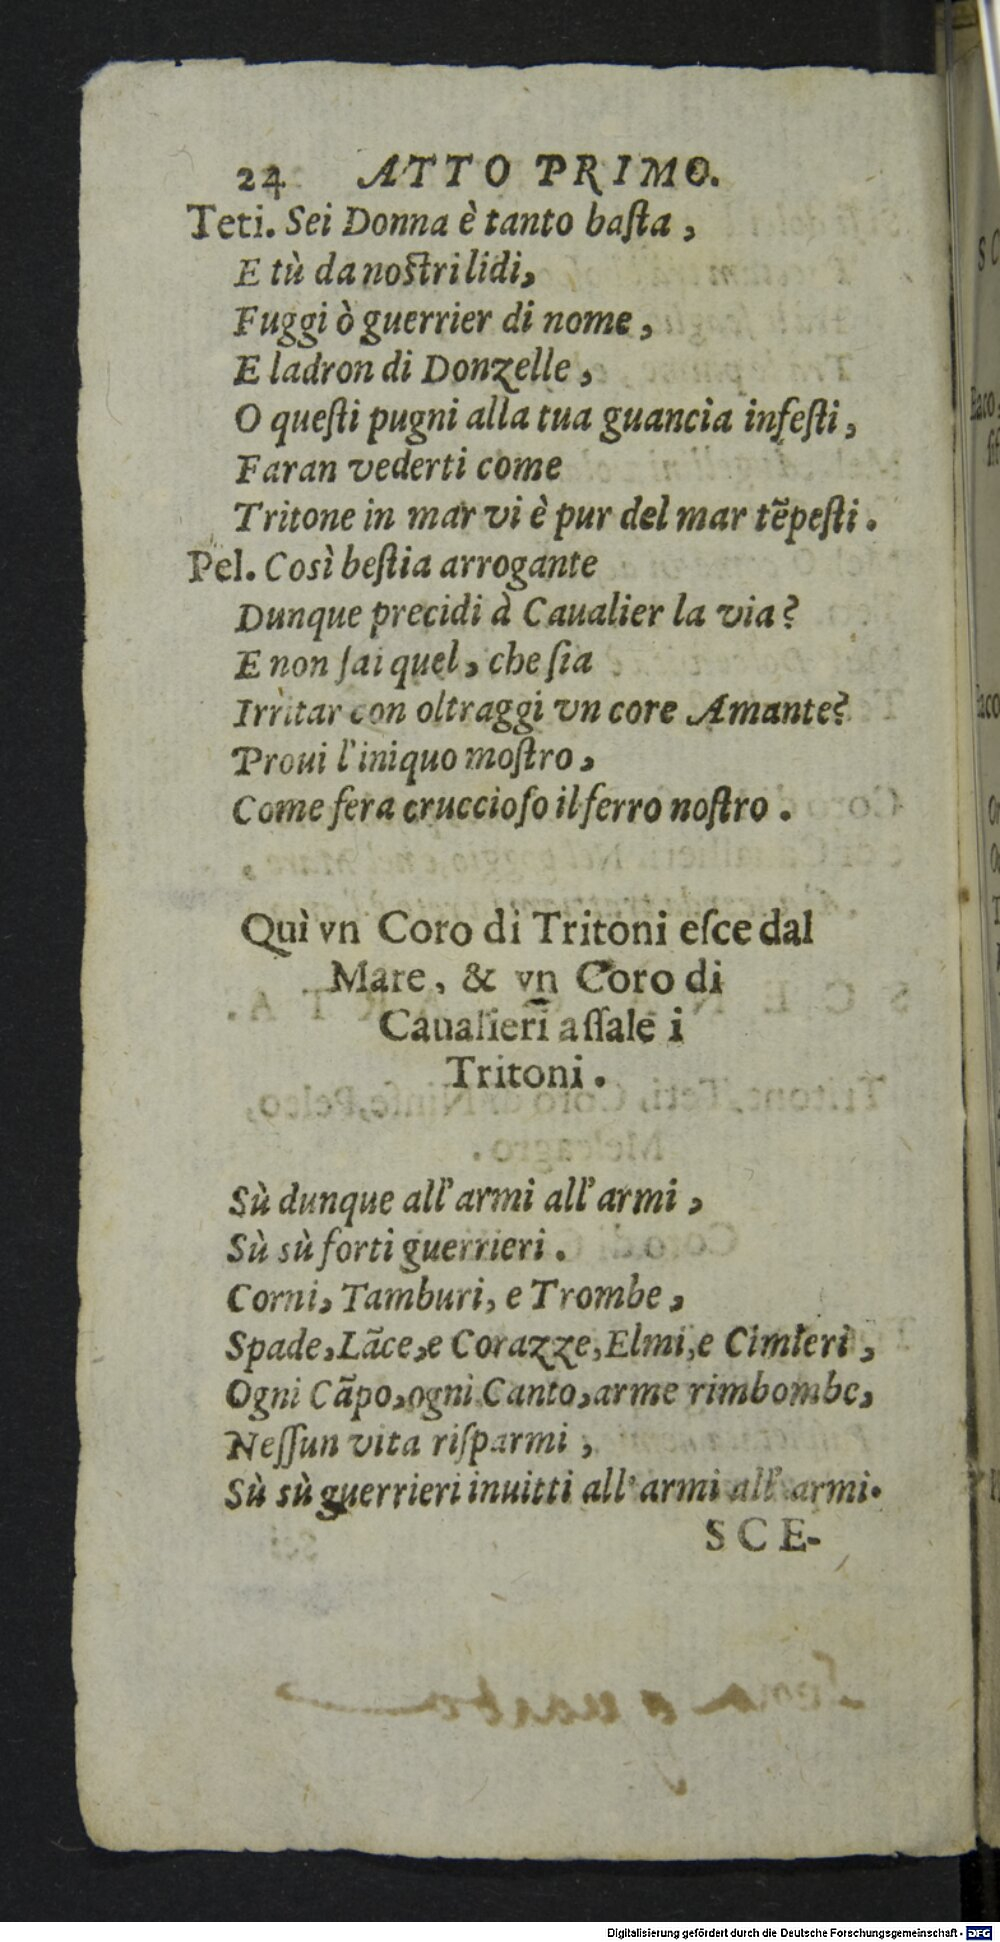 24 ATTO PRIMO.
Teti. Sei Donna è tanto baſta,
E tù da noſtri lidi,
Fuggi ò guerrier di nome,
E ladron di Donzelle,
O queſti pugni alla tua guancia infeſti,
Faran vederti come
Tritone in mar vi è pur del mar tẽpeſti.
Pel. Così beſtia arrogante
Dunque precidi à Caualier la via?
E non ſai quel, che ſia
Irritar con oltraggi vn core Amante?
Proui l'iniquo moſtro,
Come fera cruccioſo il ferro noſtro.
Quì vn Coro di Tritoni eſce dal
Mare, & vn Coro di
Caualieri aſſale i
Tritoni.
Sù dunque all'armi all'armi,
Sù sù forti guerrieri.
Corni, Tamburi, e Trombe,
Spade, Lãce, e Corazze, Elmi, e Cimieri,
Ogni Cãpo, ogni Canto, arme rimbombe,
Neſſun vita riſparmi,
Sù sù guerrieri inuitti all'armi all'armi.
SCE-
Digitalisierung gefördert durch die Deutsche Forschungsgemeinschaft - DFG